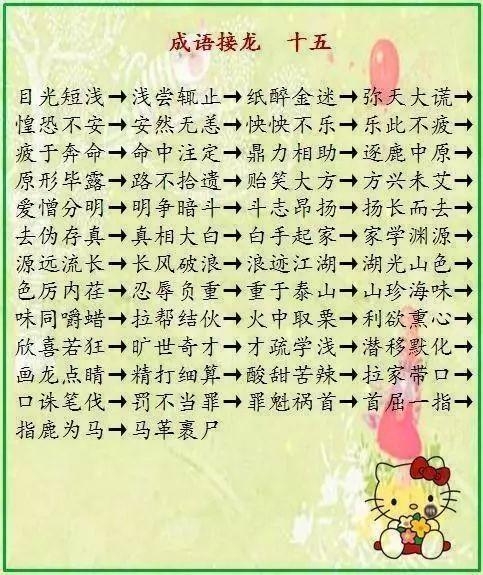 成语接龙 十五
目光短浅→浅尝辄止→纸醉金迷→弥天大谎→
惶恐不安→安然无恙→怏怏不乐→乐此不疲→
疲于奔命→命中注定→鼎力相助→逐鹿中原→
原形毕露→路不拾遗→贻笑大方→方兴未艾→
爱憎分明→明争暗斗→斗志昂扬→扬长而去→
去伪存真→真相大白→白手起家→家学渊源→
源远流长→长风破浪→浪迹江湖→湖光山色→
色厉内荏→忍辱负重→重于泰山→山珍海味→
味同嚼蜡→拉帮结伙→火中取栗→利欲熏心→
欣喜若狂→旷世奇才→才疏学浅→潜移默化→
画龙点睛→精打细算→酸甜苦辣→拉家带口→
口诛笔伐→罚不当罪→罪魁祸首→首屈一指→
指鹿为马→马革裹尸